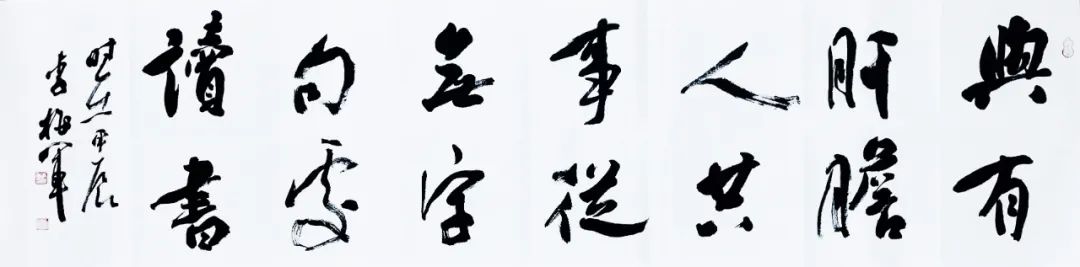 與有
肝膽
人共
事從
無字
句處
讀書
时在甲辰
李梅军